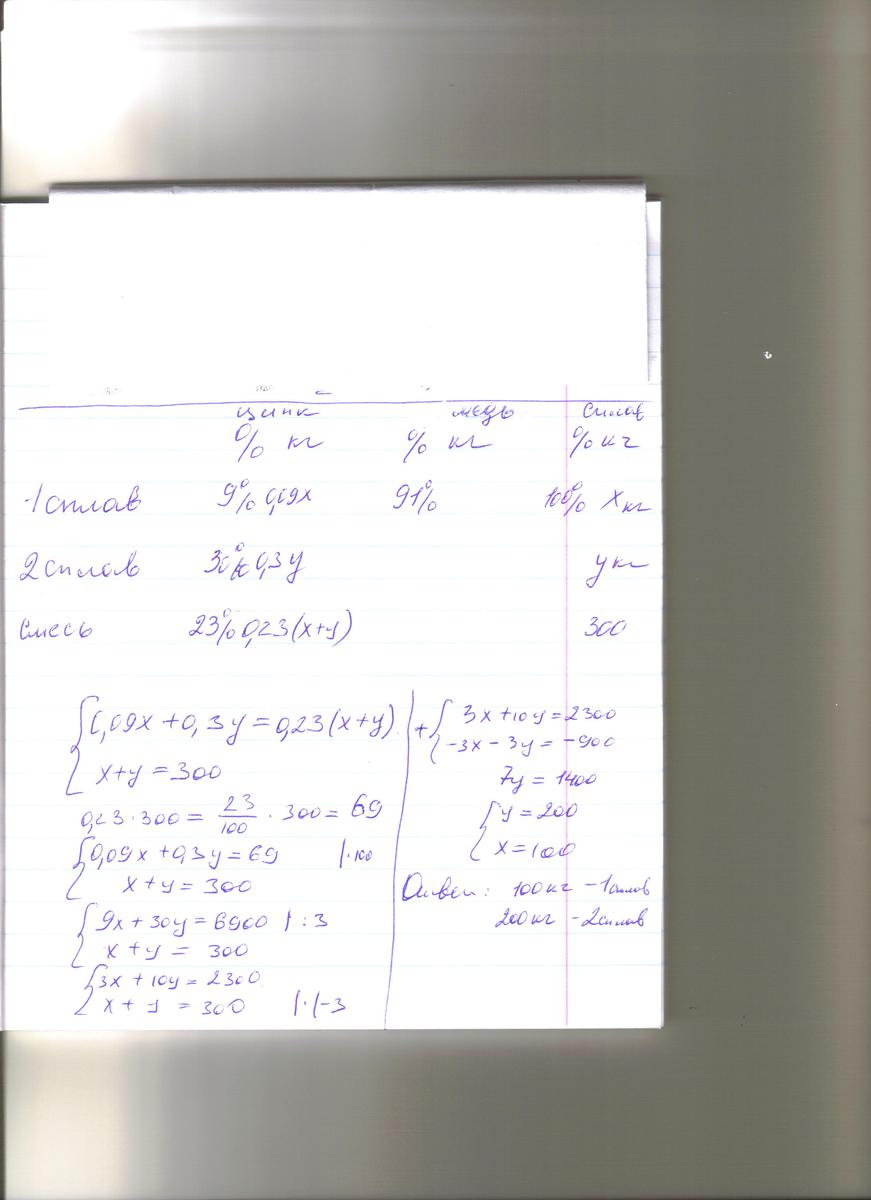 цинк медь сплав
% кг % кг % кг
1 сплав 9% 0,09x 91% 100% x кг
2 сплав 30% 0,3y y кг
смесь 23% 0,23(x+y) 300
{0,09x+0,3y=0,23(x+y)
x+y=300
0,23·300=23/100·300=69
{0,09x+0,3y=69 |·100
x+y=300
{9x+30y=6900 |:3
x+y=300
{3x+10y=2300
x+y=300 |·(-3
+{3x+10y=2300
-3x-3y=-900
7y=1400
{y=200
x=100
Ответ: 100кг - 1сплав
200кг - 2сплав